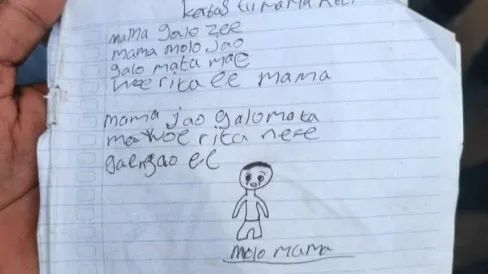 kertas tii mama reti
mama galo zee
mama molo jao
galo mata mae
woe rita ee mama
mama jao galo mata
mo woe rita nese
gae ngao ee
molo mama